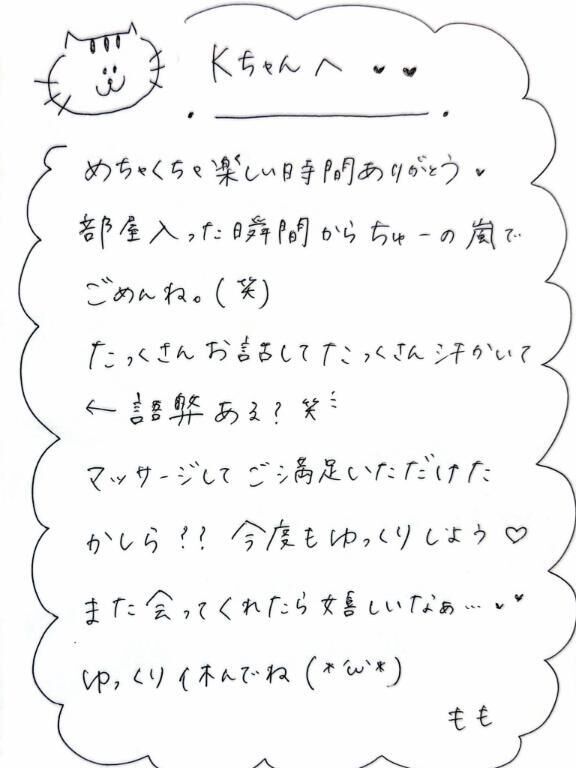 Kちゃんへ
めちゃくちゃ楽しい時間ありがとう
部屋入った瞬間からちゅーの嵐で
ごめんね。(笑)
たっくさんお話してたっくさん汗かいて
← 語弊ある？笑
マッサージしてご満足いただけた
かしら？？ 今度もゆっくりしよう♡
また会ってくれたら嬉しいなぁ…
ゆっくり休んでね(*'ω'*)
もも